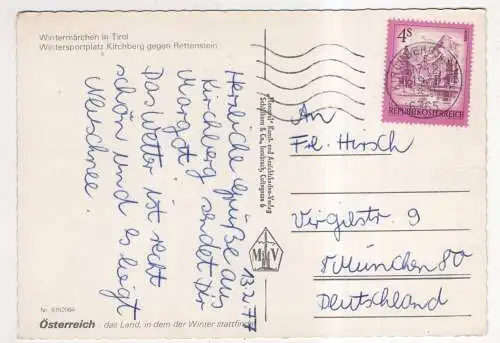 Wintermärchen in Tirol
Wintersportplatz Kirchberg gegen Rettenstein
13.2.77
Herzliche Grüße aus
Kirchberg sendet Dir
Margot.
Das Wetter ist recht
schön und es liegt
Neuschnee.
Kunst- und Ansichtskarten-Verlag
& Co., Innsbruck,
4S
REPUBLIK ÖSTERREICH
6365
An
Frl. Hirsch
Virgilstr. 9
8 München 80
Deutschland
Österreich das Land, in dem der Winter stattfindet